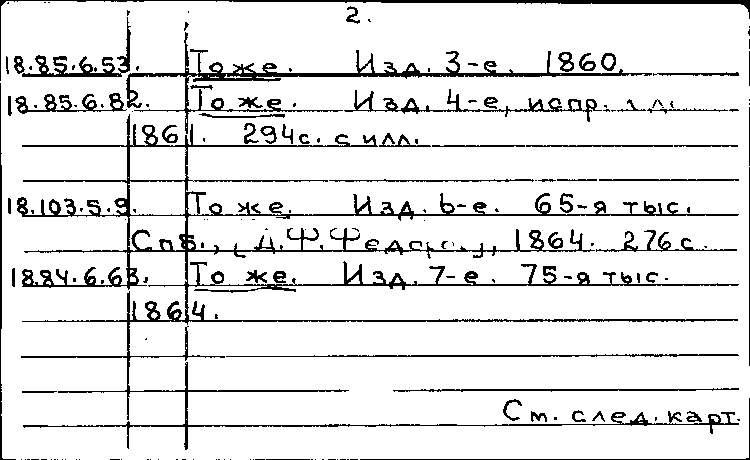 2.
18.85.6.53. То же. Изд. 3-е. 1860.
18.85.6.82. То же. Изд. 4-е, испр.
1861. 294с. с илл.
18.103.5.9. То же. Изд. 6-е. 65-я тыс.
Спб., [Д.Ф.Федоров], 1864. 276 с.
18.84.6.63. То же. Изд. 7-е. 75-я тыс.
1864.
См. след. карт.